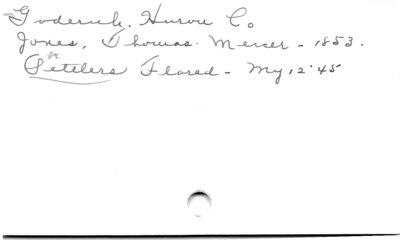 Goderich. Huron Co
Jones, Thomas. Mercer - 1853.
Settlers Flared - My, 2 '45